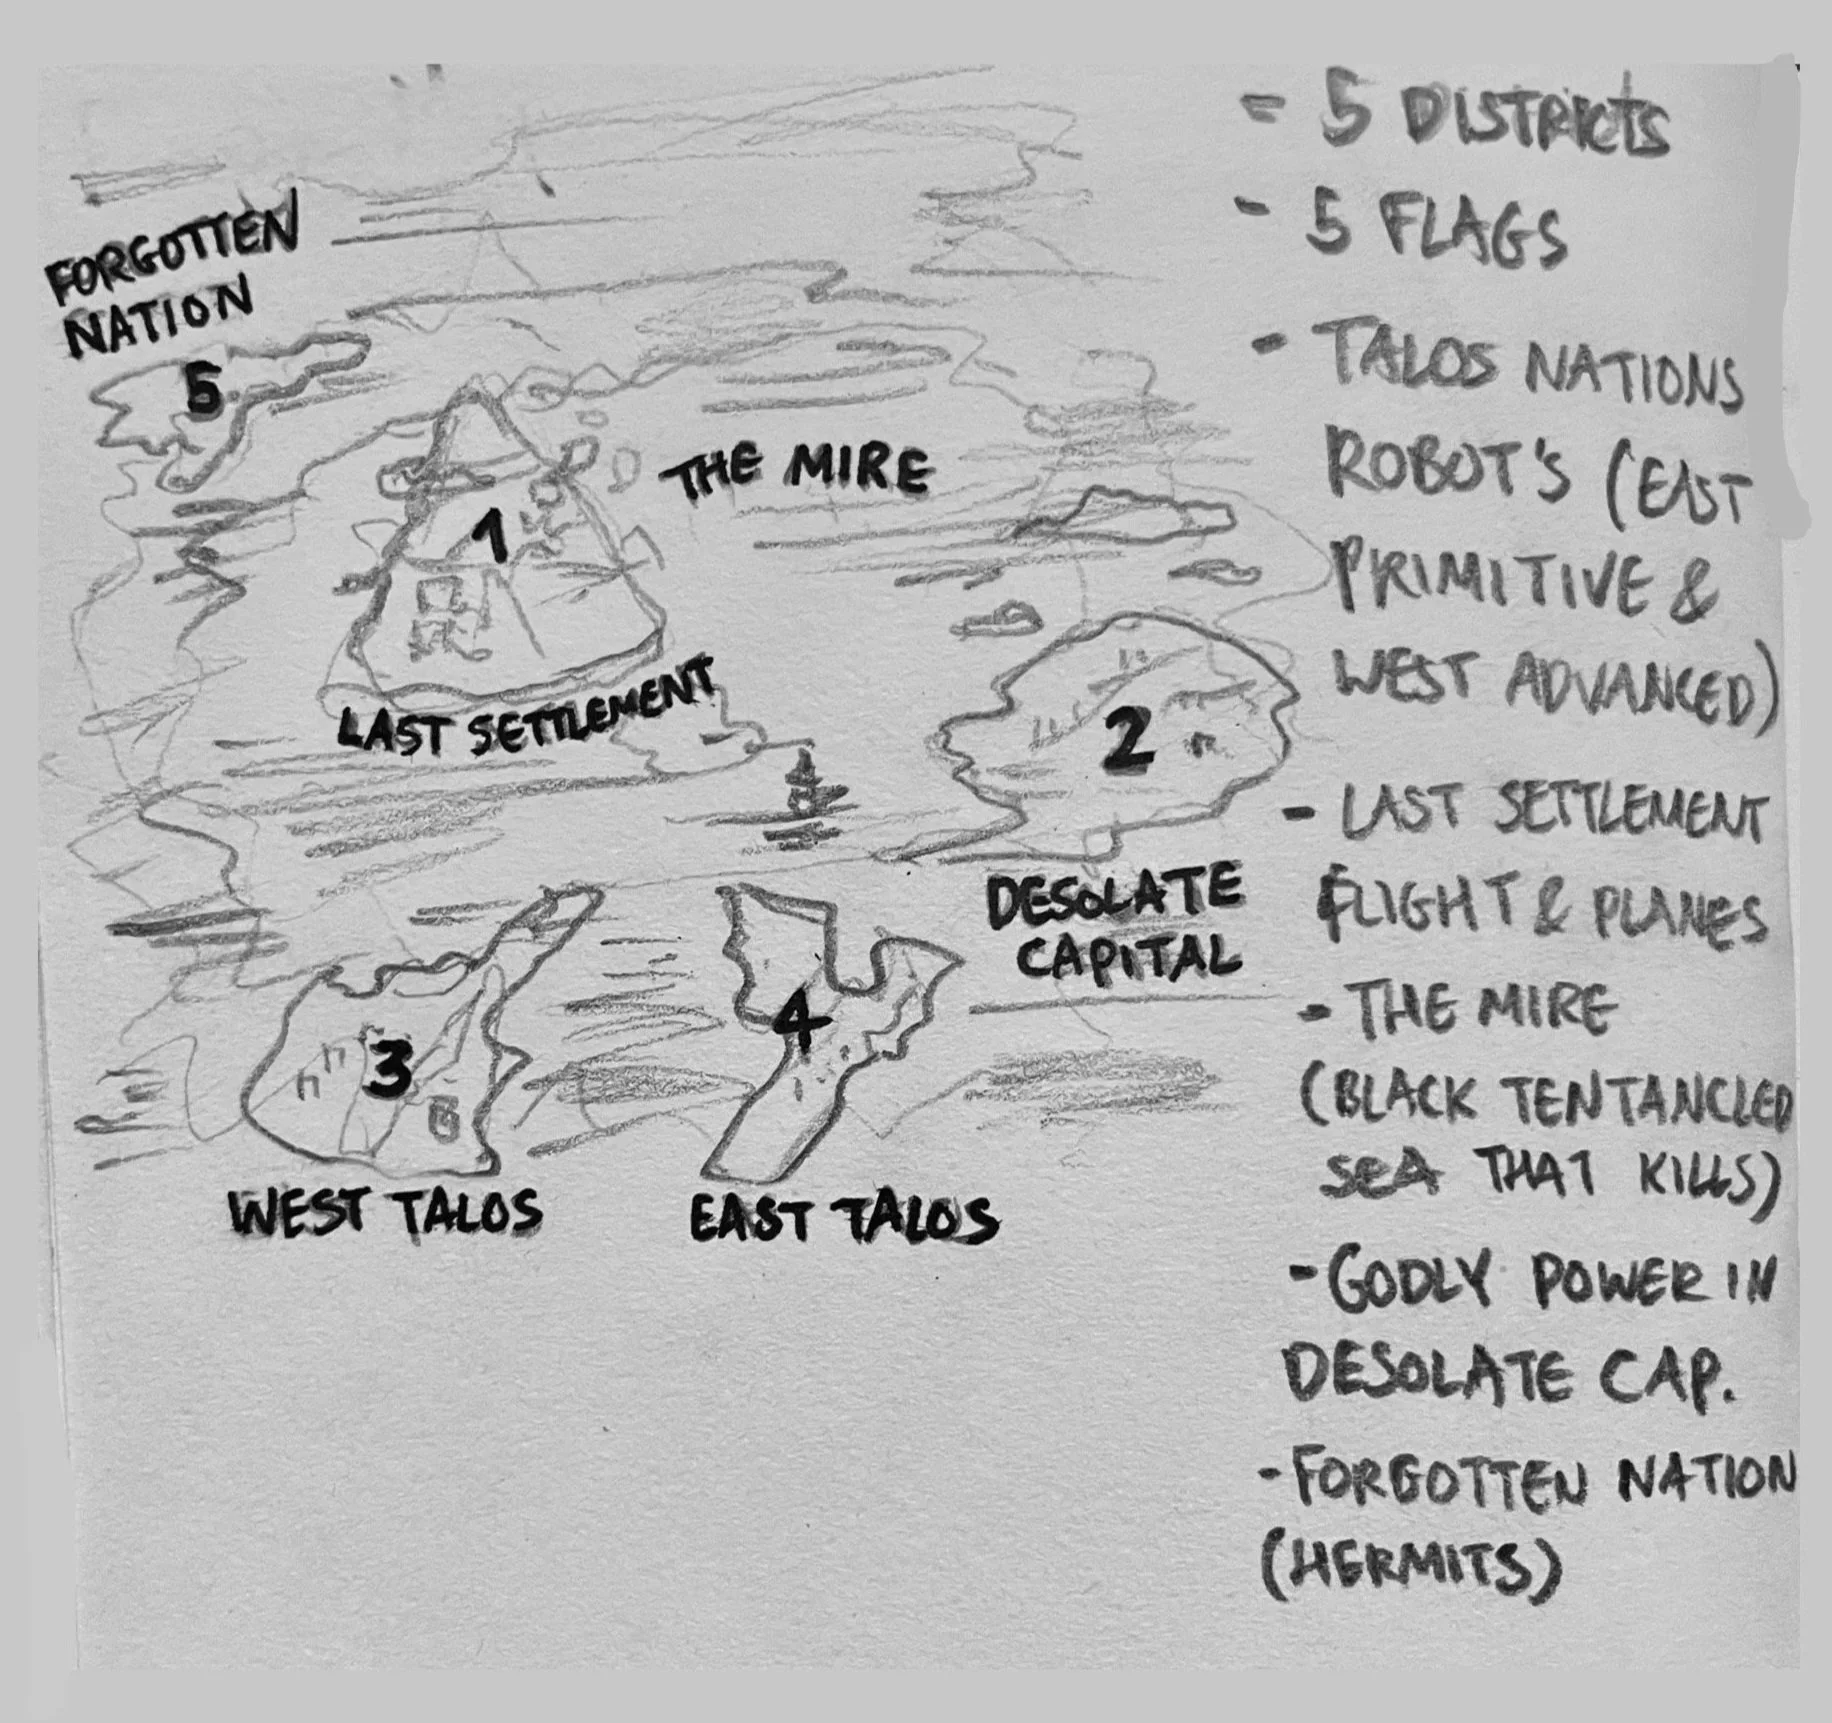 FORGOTTEN
NATION
5
THE MIRE
1
LAST SETTLEMENT
2
DESOLATE
CAPITAL
3
4
WEST TALOS
EAST TALOS
- 5 DISTRICTS
- 5 FLAGS
- TALOS NATIONS
ROBOT'S (EAST
PRIMITIVE &
WEST ADVANCED)
- LAST SETTLEMENT
FLIGHT & PLANES
- THE MIRE
(BLACK TENTANCLED
SEA THAT KILLS)
- GODLY POWER IN
DESOLATE CAP.
- FORGOTTEN NATION
(HERMITS)